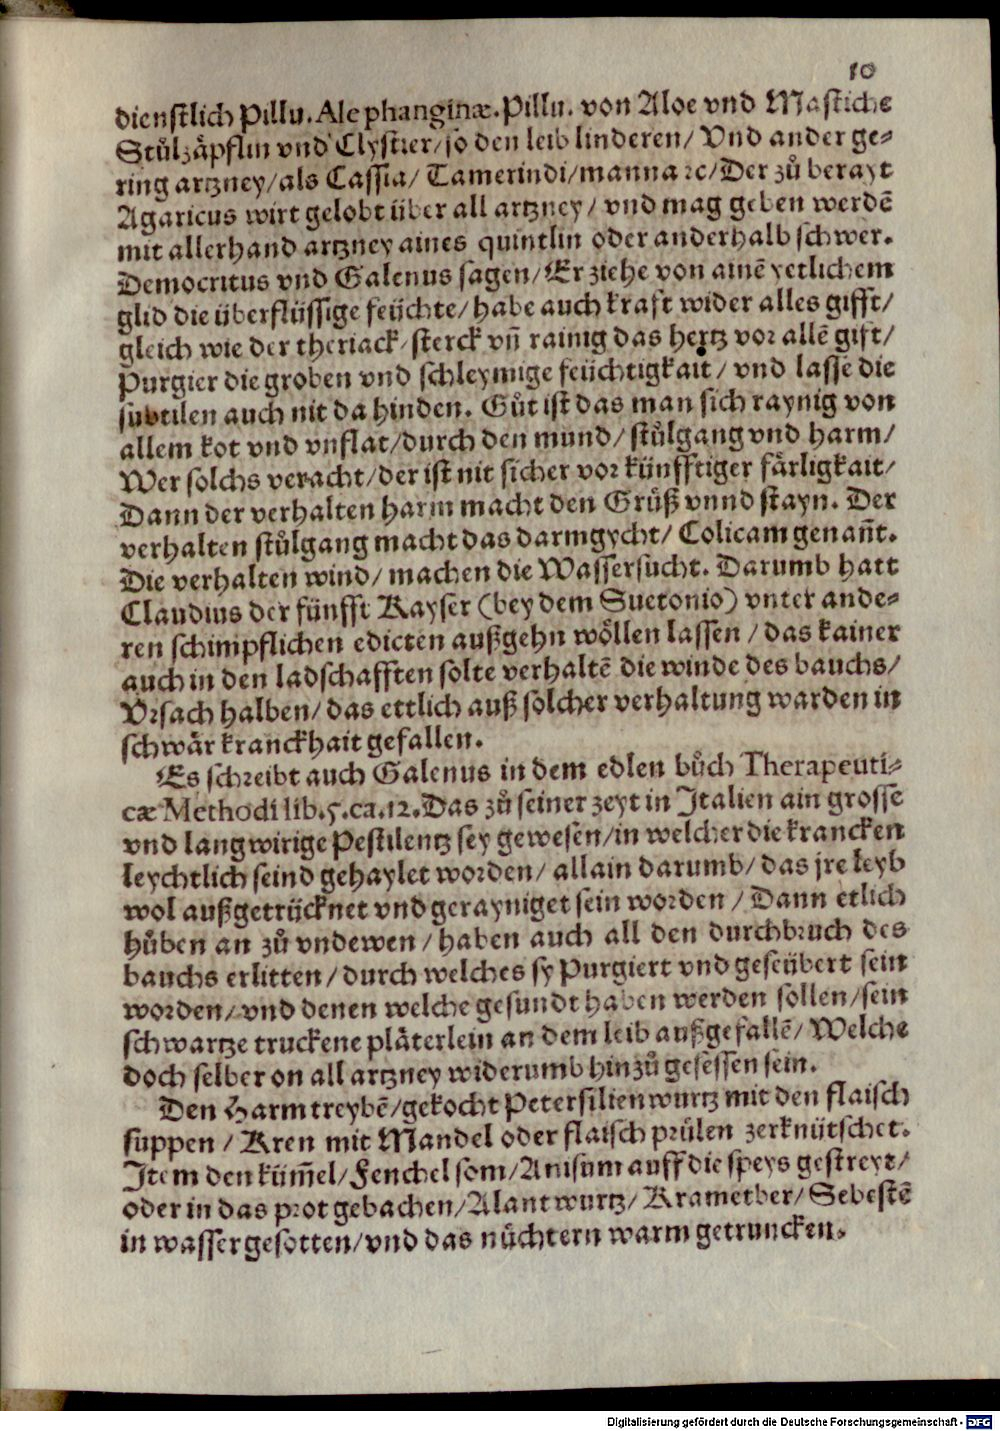 10
dienstlich Pillu. Alephanginæ. Pillu. von Aloe vnd Mastiche
Stůlzäpflin vnd Clystier/so den leib linderen/ Vnd ander ge-
ring artzney/als Cassia/ Tamerindi/manna ꝛc/Der zů berayt
Agaricus wirt gelobt über all artzney/ vnd mag geben werdē
mit allerhand artzney aines quintlin oder anderhalb schwer.
Democritus vnd Galenus sagen/Er ziehe von ainē yetlichem
glid die überflüssige feüchte/habe auch kraft wider alles gifft/
gleich wie der theriack/sterck vñ rainig das hertz vor allē gift/
Purgier die groben vnd schleymige feüchtigkait/ vnd lasse die
subtilen auch nit da hinden. Gůt ist das man sich raynig von
allem kot vnd vnflat/durch den mund/ stůlgang vnd harm/
Wer solchs veracht/der ist nit sicher vor künfftiger färligkait/
Dann der verhalten harm macht den Grüß vnnd stayn. Der
verhalten stůlgang macht das darmgycht/ Colicam genañt.
Die verhalten wind/ machen die Wassersucht. Darumb hatt
Claudius der fünfft Kayser (bey dem Suetonio) vnter ande-
ren schimpflichen edicten außgehn wöllen lassen/ das kainer
auch in den ladschafften solte verhaltē die winde des bauchs/
Vrsach halben/ das ettlich auß solcher verhaltung warden in
schwär kranckhait gefallen.
Es schreibt auch Galenus in dem edlen bůch Therapeuti-
cæ Methodi lib. 5. ca. 12. Das zů seiner zeyt in Italien ain grosse
vnd langwirige Pestilentz sey gewesen/in welcher die krancken
leychtlich seind gehaylet worden/ allain darumb/ das jre leyb
wol außgetrücknet vnd gerayniget sein worden/ Dann etlich
hůben an zů vndewen/ haben auch all den durchbruch des
bauchs erlitten/durch welches sy Purgiert vnd geseübert sein
worden/ vnd denen welche gesundt haben werden sollen/sein
schwartze truckene pläterlein an dem leib außgefallē/ Welche
doch selber on all artzney widerumb hinzů gesessen sein.
Den Harm treybē/gekocht Petersilienwurtz mit den flaisch
suppen/ Kren mit Mandel oder flaisch prülen zerknütschet.
Item den küm̄el/Fenchelsom/Anisum auff die speys gestreyt/
oder in das prot gebachen/Alantwurtz/ Krametber/ Sebestē
in wasser gesotten/vnd das nüchtern warm getruncken.
Digitalisierung gefördert durch die Deutsche Forschungsgemeinschaft - DFG